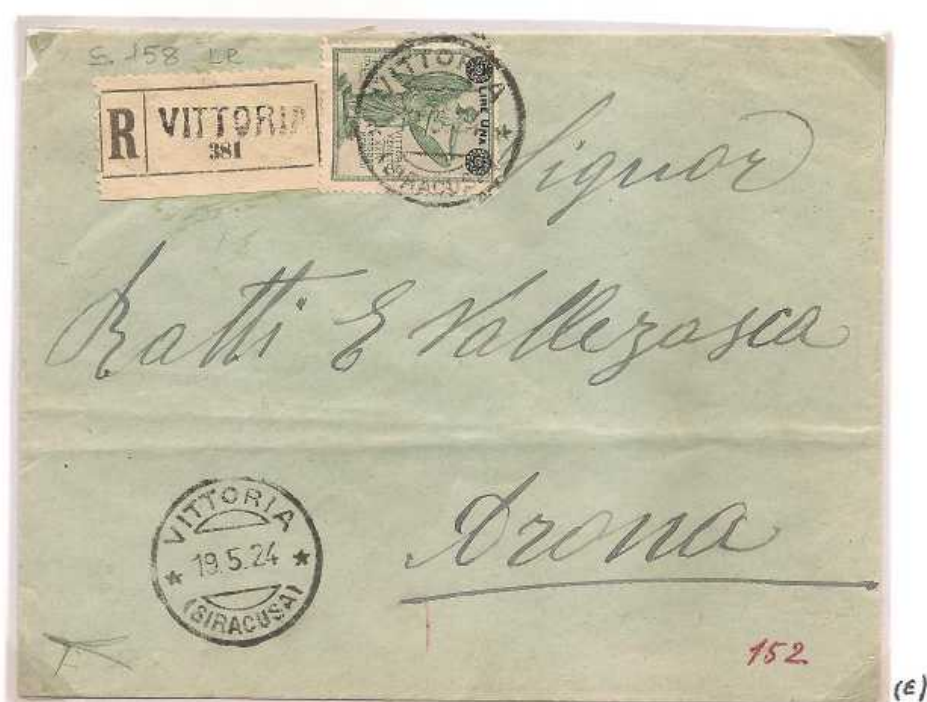 S. 158 LR
R VITTORIA
381
LIRE UNA
VITTORIA
(SIRACUSA)
Signor
Ratti E Vallezasca
Arona
VITTORIA
19.5.24
(SIRACUSA)
152
(E)